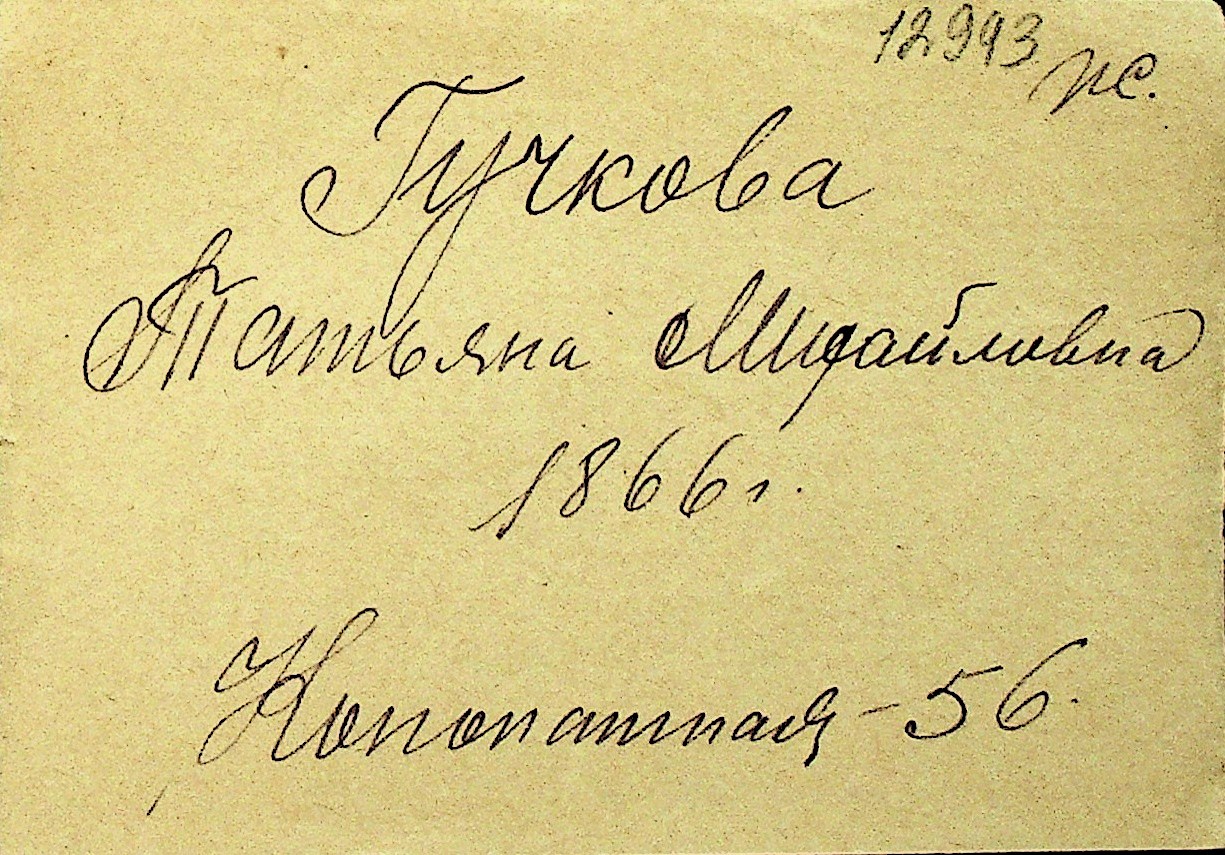 12993 рс.
Гучкова
Татьяна Михайловна
1866 г.
Конопатная - 56.